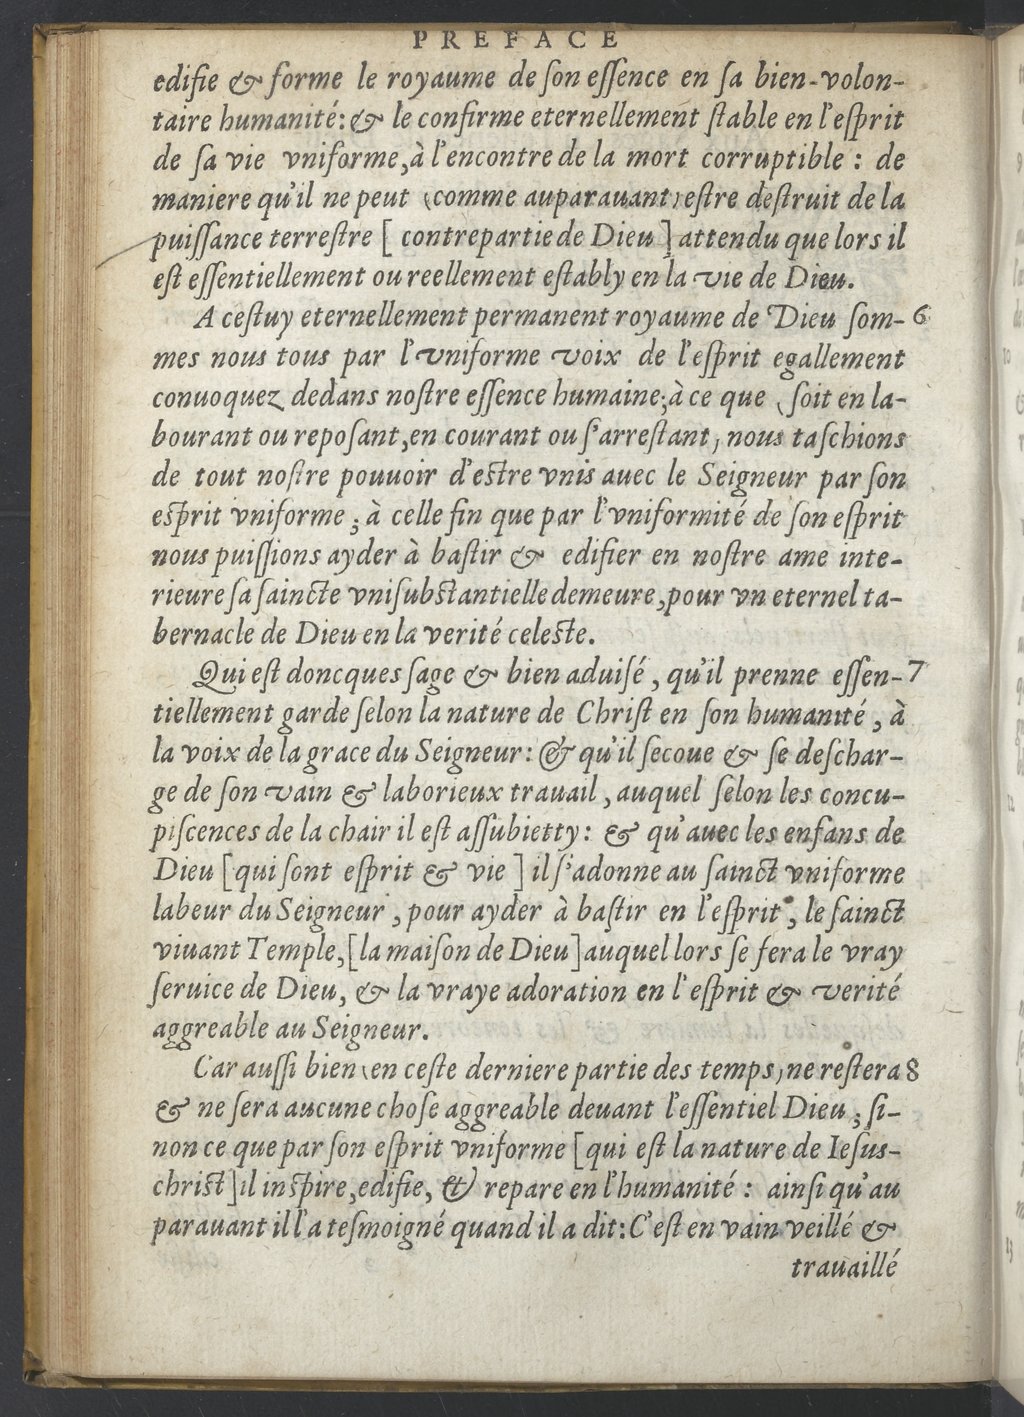 PREFACE
edifie & forme le royaume de ſon eſſence en ſa bien-volon-
taire humanité: & le confirme eternellement ſtable en l'eſprit
de ſa vie vniforme, à l'encontre de la mort corruptible : de
maniere qu'il ne peut (comme auparauant) eſtre deſtruit de la
puiſſance terreſtre [ contrepartie de Dieu ] attendu que lors il
eſt eſſentiellement ou reellement eſtably en la vie de Dieu.
A ceſtuy eternellement permanent royaume de Dieu ſom- 6
mes nous tous par l'vniforme voix de l'eſprit egallement
conuoquez dedans noſtre eſſence humaine; à ce que (ſoit en la-
bourant ou repoſant, en courant ou ſ'arreſtant) nous taſchions
de tout noſtre pouuoir d'eſtre vnis auec le Seigneur par ſon
eſprit vniforme ; à celle fin que par l'vniformité de ſon eſprit
nous puiſſions ayder à baſtir & edifier en noſtre ame inte-
rieure ſa ſaincte vniſubſtantielle demeure, pour vn eternel ta-
bernacle de Dieu en la verité celeſte.
Qui eſt doncques ſage & bien aduiſé, qu'il prenne eſſen- 7
tiellement garde ſelon la nature de Chriſt en ſon humanité, à
la voix de la grace du Seigneur: & qu'il ſecoue & ſe deſchar-
ge de ſon vain & laborieux trauail, auquel ſelon les concu-
piſcences de la chair il eſt aſſubietty: & qu'auec les enfans de
Dieu [qui ſont eſprit & vie ] il ſ'adonne au ſainct vniforme
labeur du Seigneur, pour ayder à baſtir en l'eſprit, le ſainct
viuant Temple, [la maiſon de Dieu] auquel lors ſe fera le vray
ſeruice de Dieu, & la vraye adoration en l'eſprit & verité
aggreable au Seigneur.
Car auſſi bien (en ceſte derniere partie des temps) ne reſtera 8
& ne ſera aucune choſe aggreable deuant l'eſſentiel Dieu ; ſi-
non ce que par ſon eſprit vniforme [qui eſt la nature de Ieſus-
chriſt] il inſpire, edifie, & repare en l'humanité : ainſi qu'au
parauant il l'a teſmoigné quand il a dit: C'eſt en vain veillé &
trauaillé